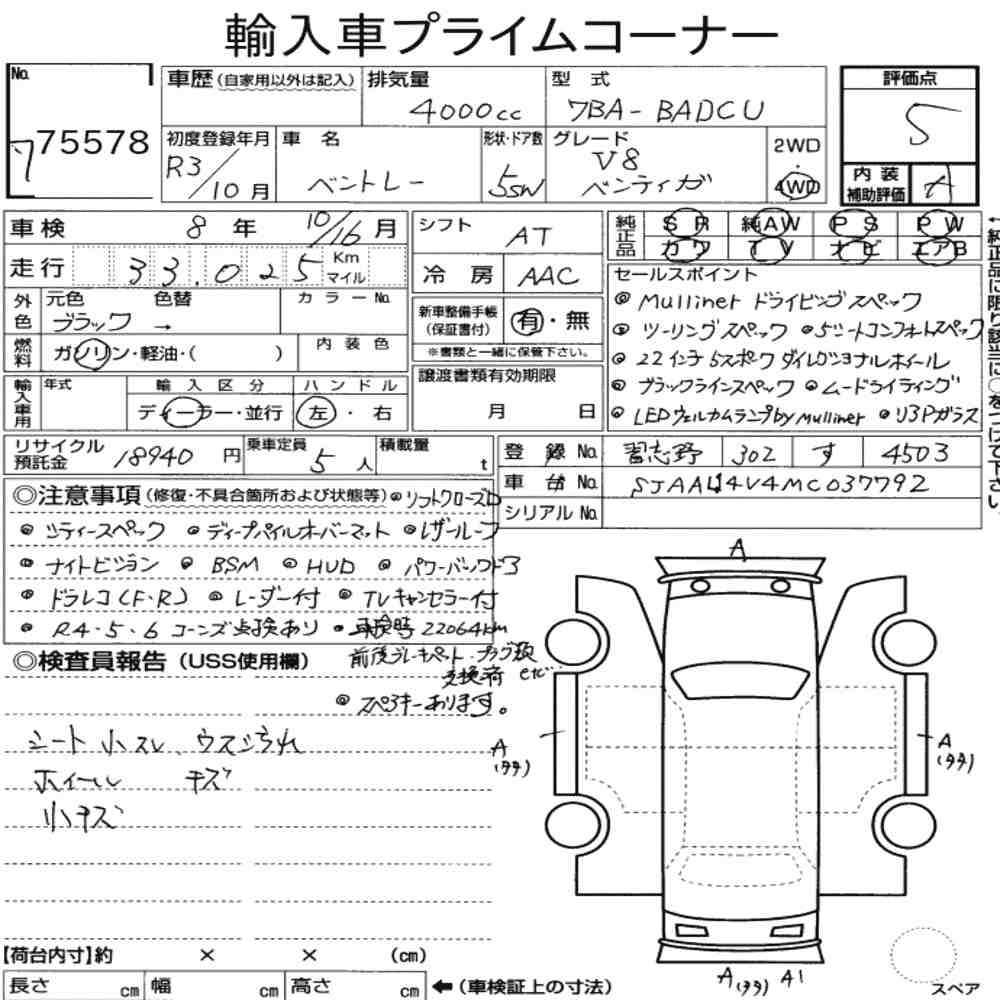 輸入車プライムコーナー
No. 75578
車歴(自家用以外は記入) 排気量 4000cc 型式 7BA-BADCU 評価点 5
初度登録年月 R3/10月 車名 ベントレー 形状・ドア数 5SW グレード V8 ベンティガ 2WD・4WD 内装補助評価 A
車検 8年 10/16月 シフト AT 純正品 SR 純AW PS PW
走行 33,025 Km マイル 冷房 AAC カワ TV ナビ エアB
外色 元色 ブラック 色替 → カラーNo. 新車整備手帳(保証書付) 有・無
※書類と一緒に保管下さい。
燃料 ガソリン・軽油・( ) 内装色
輸入車用 年式 輸入区分 ディーラー・並行 ハンドル 左・右
譲渡書類有効期限 月 日
セールスポイント
◎Mulliner ドライビングスペック
◎ツーリングスペック ◎5シートコンフォートスペック
◎22インチ5スポークダイレクショナルホイール
◎ブラックラインスペック ◎ムードライティング
◎LEDウェルカムランプby mulliner ◎リヤPガラス
リサイクル預託金 18940円 乗車定員 5人 積載量 t
登録No. 習志野 302 す 4503
車台No. SJAAL14V4MC037792
シリアルNo.
◎注意事項(修復・不具合箇所および状態等) ◎ソフトクローズD
◎シティースペック ◎ディープパイルオーバーマット ◎レザールーフ
◎ナイトビジョン ◎BSM ◎HUD ◎パワーバックドア
◎ドラレコ(F・R) ◎レーダー付 ◎TVキャンセラー付
◎R4・5・6 コーンズ点検あり ◎車検時 22064km
前後ブレーキパット・プラグ類
交換済 etc
◎スペアキーあります。
◎検査員報告(USS使用欄)
シート小スレ、ウスヨゴレ
ホイール キズ
小キズ
A
A(タテ)
A(タテ)
A(タテ) A1
【荷台内寸】約 × × (cm)
長さ cm 幅 cm 高さ cm ←(車検証上の寸法)
スペア